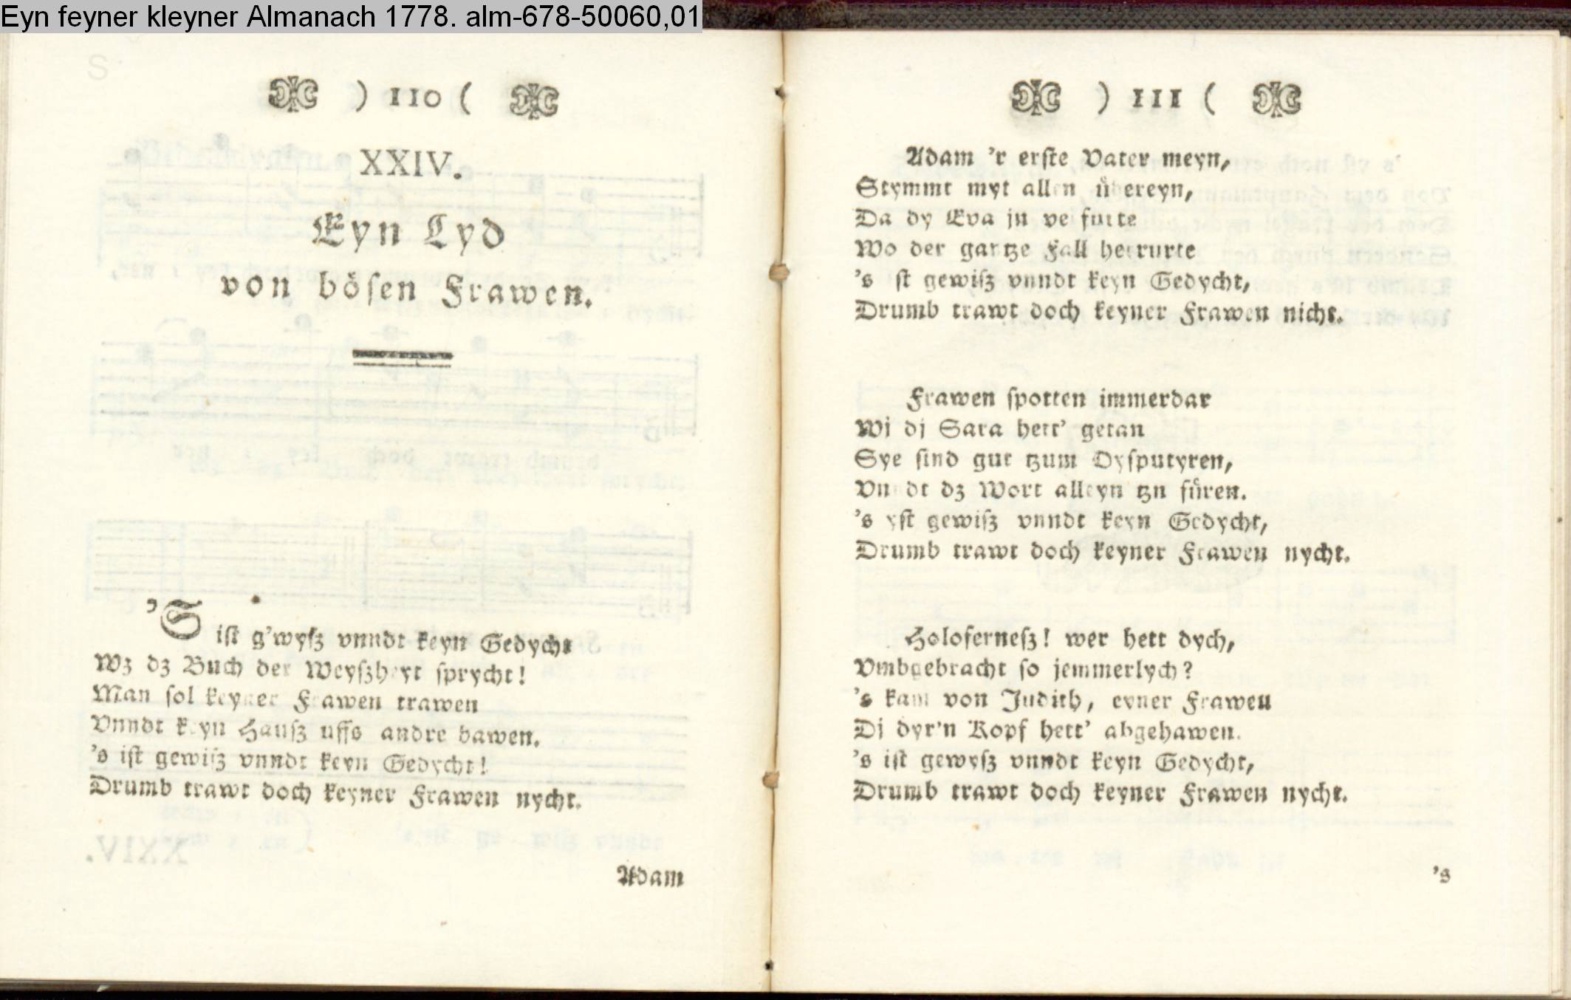 Eyn feyner kleyner Almanach 1778. alm-678-50060,01
) 110 (
XXIV.
Eyn Lyd
von bösen Frawen.
'S ist g'wysz vnndt keyn Gedycht
Wz dz Buch der Weyszheyt sprycht!
Man sol keyner Frawen trawen
Vnndt keyn Hausz uffs andre bawen.
's ist gewisz vnndt keyn Gedycht!
Drumb trawt doch keyner Frawen nycht.
Adam
) 111 (
Adam 'r erste Vater meyn,
Stymmt myt allen übereyn,
Da dy Eva jn verfurte
Wo der gantze Fall herrurte
's ist gewisz vnndt keyn Gedycht,
Drumb trawt doch keyner Frawen nicht.
Frawen spotten immerdar
Wi di Sara hett' getan
Sye sind gut tzum Dysputyren,
Vnndt dz Wort alleyn tzu füren.
's yst gewisz vnndt keyn Gedycht,
Drumb trawt doch keyner Frawen nycht.
Holofernesz! wer hett dych,
Vmbgebracht so jemmerlych?
's kam von Judith, eyner Frawen
Di dyr'n Kopf hett' abgehawen.
's ist gewysz vnndt keyn Gedycht,
Drumb trawt doch keyner Frawen nycht.
's